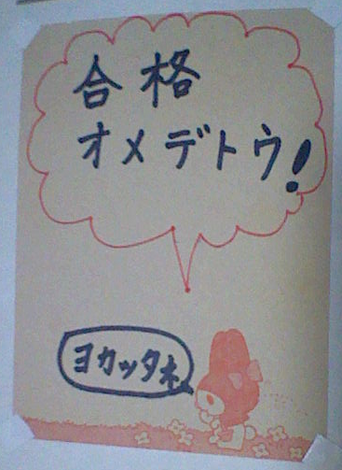 合格
オメデトウ!
ヨカッタネ